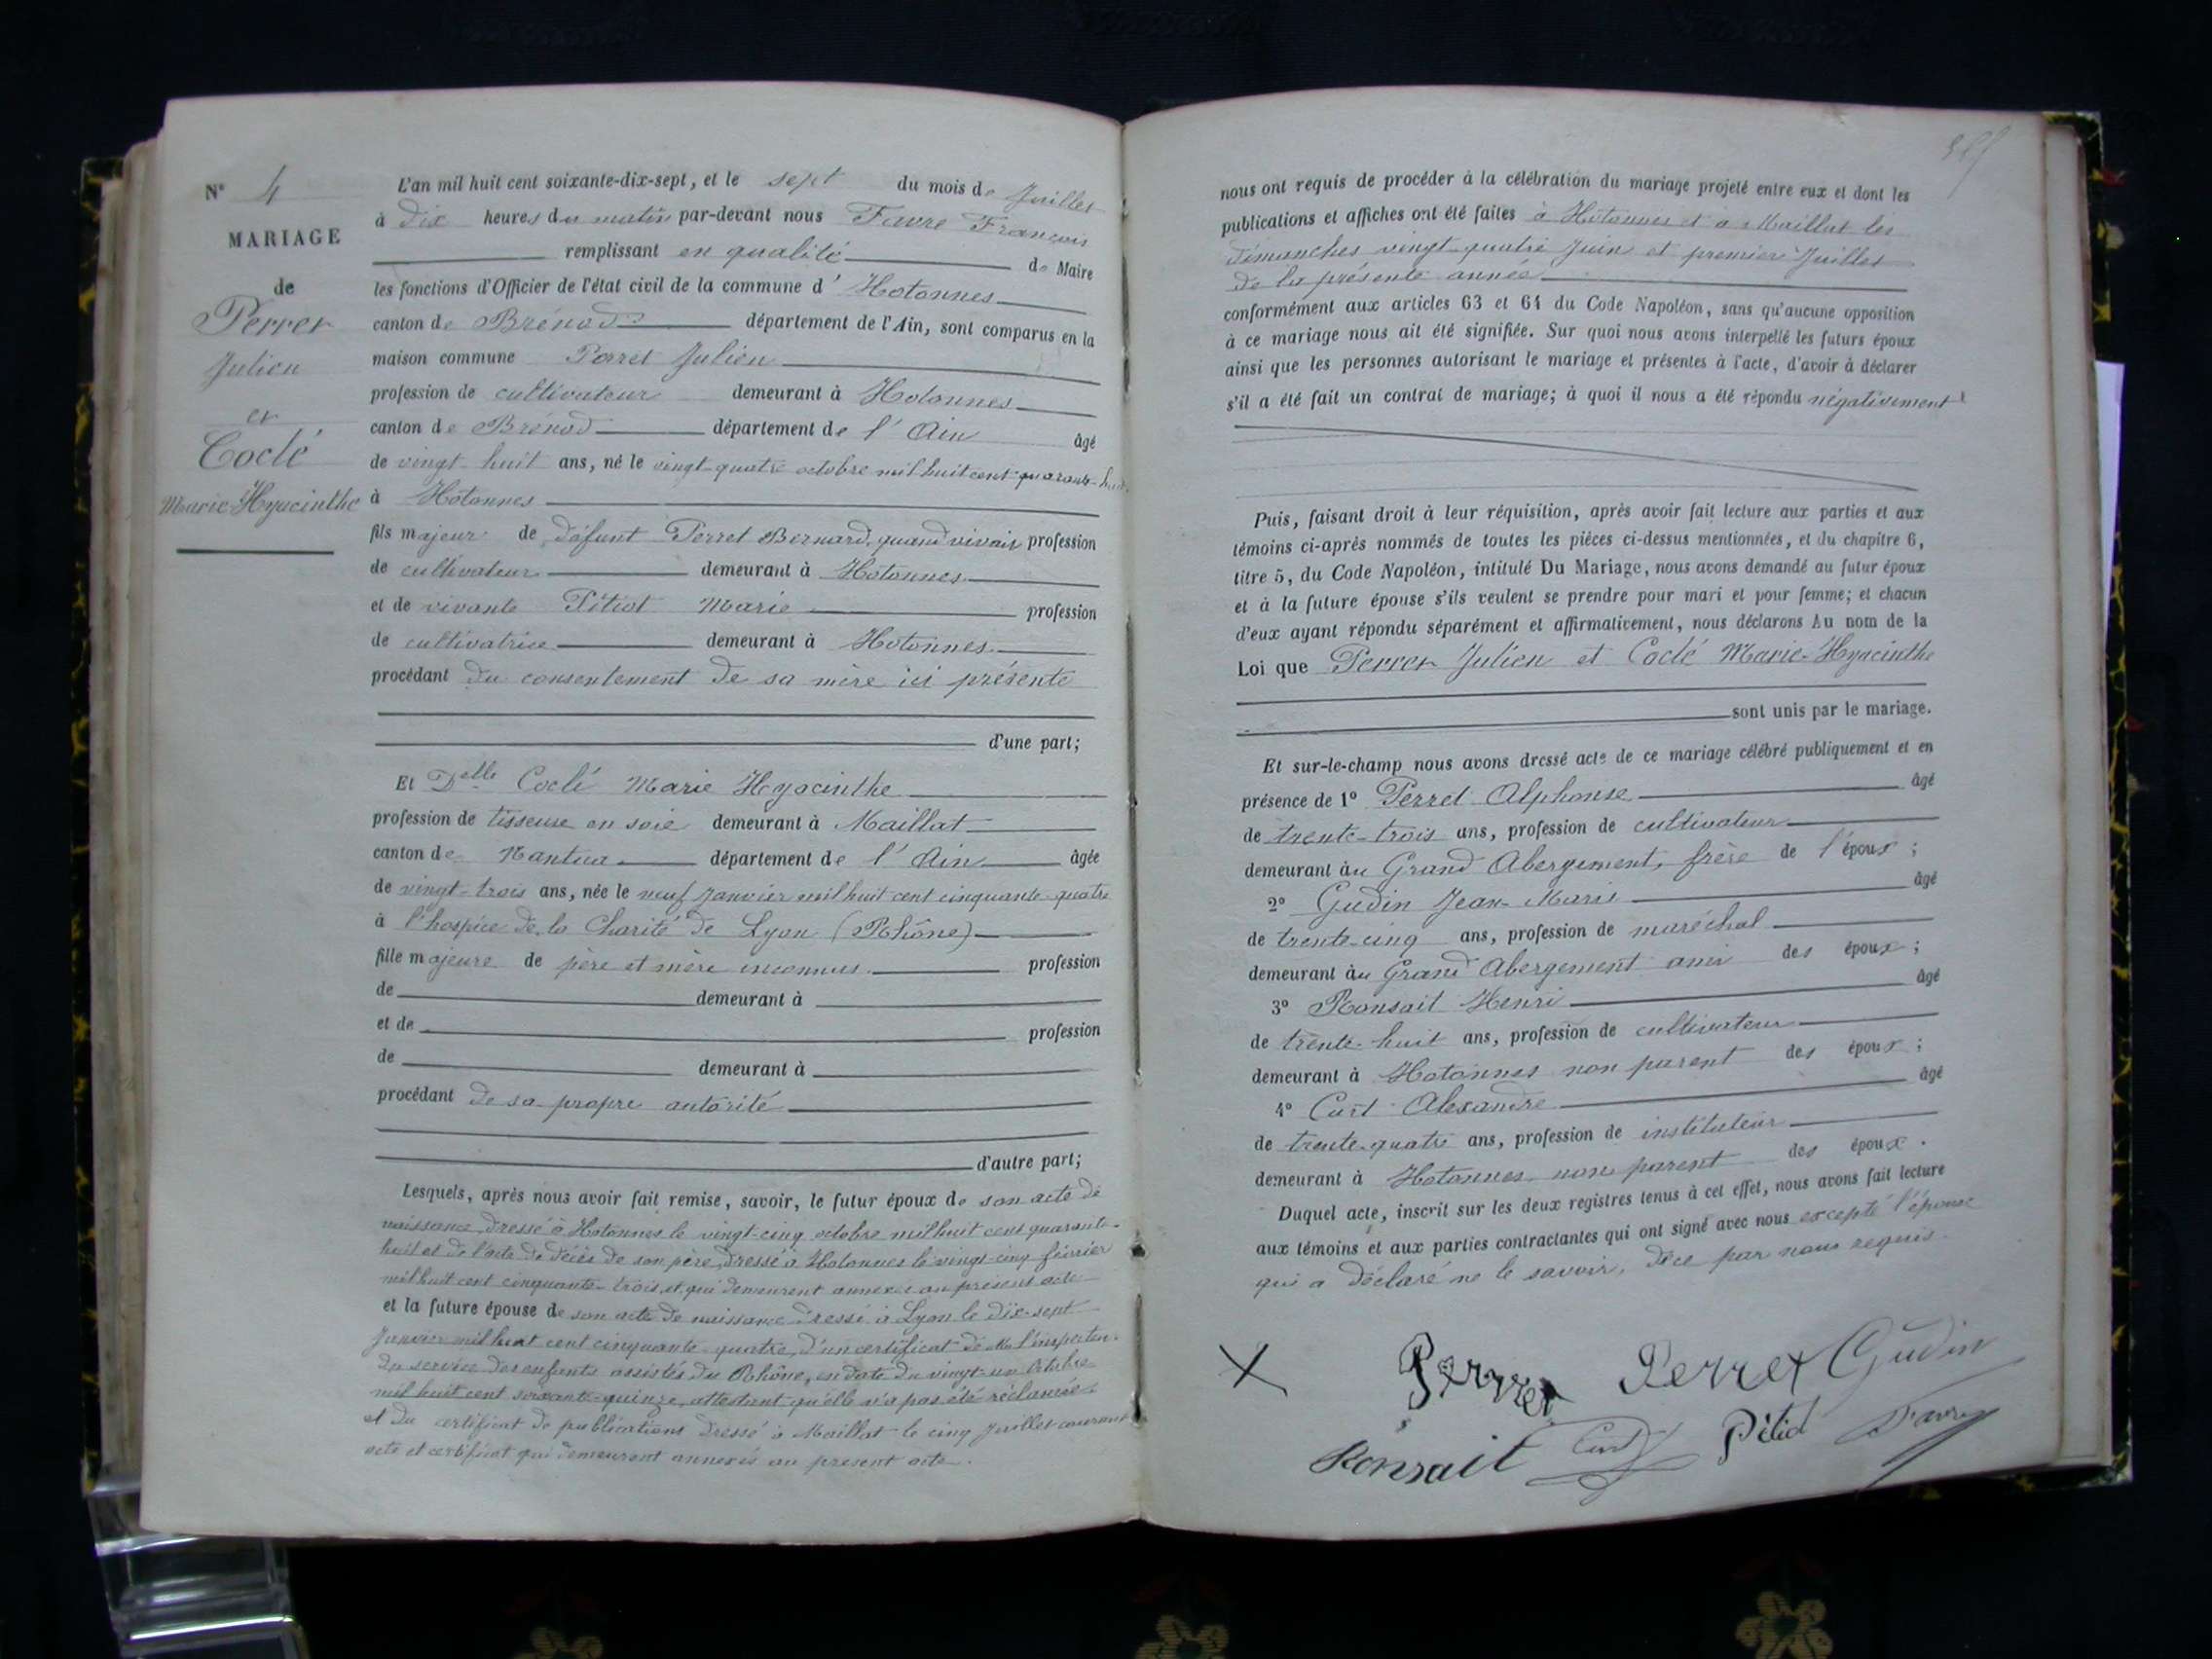 N° 4
MARIAGE
de
Perret
Julien
et
Coclé
Marie-Hyacinthe
L'an mil huit cent soixante-dix-sept, et le sept du mois de Juillet
à dix heures du matin par-devant nous Favre François
remplissant en qualité de Maire
les fonctions d'Officier de l'état civil de la commune d' Hotonnes
canton de Brénod département de l'Ain, sont comparus en la
maison commune Perret Julien
profession de cultivateur demeurant à Hotonnes
canton de Brénod département de l'Ain âgé
de vingt huit ans, né le vingt-quatre octobre mil huit cent quarante-huit
à Hotonnes
fils majeur de défunt Perret Bernard, quand vivait profession
de cultivateur demeurant à Hotonnes
et de vivante Pétiot Marie profession
de cultivatrice demeurant à Hotonnes
procédant du consentement de sa mère ici présente
d'une part;
Et Delle Coclé Marie Hyacinthe
profession de tisseuse en soie demeurant à Maillat
canton de Nantua département de l'Ain âgée
de vingt-trois ans, née le neuf Janvier mil huit cent cinquante-quatre
à l'hospice de la Charité de Lyon (Rhône)
fille majeure de père et mère inconnus profession
de demeurant à
et de profession
de demeurant à
procédant de sa propre autorité
d'autre part;
Lesquels, après nous avoir fait remise, savoir, le futur époux de son acte de
naissance dressé à Hotonnes le vingt-cinq octobre mil huit cent quarante-
huit et de l'acte de décès de son père, dressé à Hotonnes le vingt-cinq février
mil huit cent cinquante-trois, et qui demeurent annexés au présent acte
et la future épouse de son acte de naissance dressé à Lyon le dix-sept
Janvier mil huit cent cinquante-quatre, d'un certificat de M. l'inspecteur
du service des enfants assistés du Rhône, en date du vingt-un Octobre
mil huit cent soixante-quinze, attestant qu'elle n'a pas été réclamée
et du certificat de publications dressé à Maillat le cinq Juillet courant
acte et certificat qui demeurent annexés au présent acte.
nous ont requis de procéder à la célébration du mariage projeté entre eux et dont les
publications et affiches ont été faites à Hotonnes et à Maillat les
dimanches vingt-quatre Juin et premier Juillet
de la présente année
conformément aux articles 63 et 64 du Code Napoléon, sans qu'aucune opposition
à ce mariage nous ait été signifiée. Sur quoi nous avons interpellé les futurs époux
ainsi que les personnes autorisant le mariage et présentes à l'acte, d'avoir à déclarer
s'il a été fait un contrat de mariage; à quoi il nous a été répondu négativement
Puis, faisant droit à leur réquisition, après avoir fait lecture aux parties et aux
témoins ci-après nommés de toutes les pièces ci-dessus mentionnées, et du chapitre 6,
titre 5, du Code Napoléon, intitulé Du Mariage, nous avons demandé au futur époux
et à la future épouse s'ils veulent se prendre pour mari et pour femme; et chacun
d'eux ayant répondu séparément et affirmativement, nous déclarons Au nom de la
Loi que Perret Julien et Coclé Marie-Hyacinthe
sont unis par le mariage.
Et sur-le-champ nous avons dressé acte de ce mariage célébré publiquement et en
présence de 1° Perret Alphonse âgé
de trente-trois ans, profession de cultivateur
demeurant au Grand Abergement, frère de l'époux;
2° Gudin Jean-Marie âgé
de trente-cinq ans, profession de maréchal
demeurant au Grand Abergement ami des époux;
3° Ronsait Henri âgé
de trente-huit ans, profession de cultivateur
demeurant à Hotonnes non parent des époux;
4° Curt Alexandre âgé
de trente-quatre ans, profession de instituteur
demeurant à Hotonnes non parent des époux.
Duquel acte, inscrit sur les deux registres tenus à cet effet, nous avons fait lecture
aux témoins et aux parties contractantes qui ont signé avec nous excepté l'épouse
qui a déclaré ne le savoir, de ce par nous requis.
X Perret Perret Gudin
Ronsait Curt Pétiot Favre